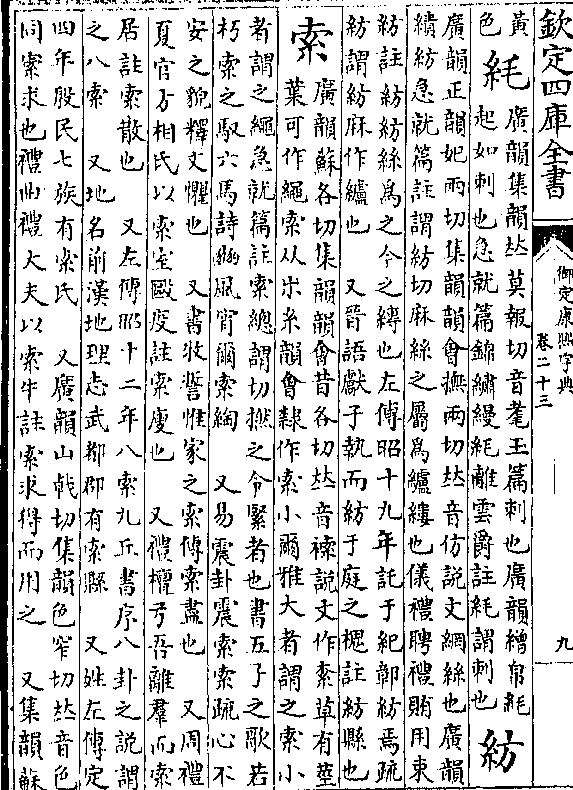 欽定四庫全書
御定康熙字典
卷二十三
九
黃色
毦 廣韻集韻𠀤莫報切音耄玉篇刺也廣韻繒帛毦
起如刺也急就篇錦繡縵毦離雲爵註毦謂刺也 紡
廣韻正韻妃兩切集韻韻會撫兩切𠀤音仿說文網絲也廣韻
績紡急就篇註謂紡切麻絲之屬為纑縷也儀禮聘禮賄用束
紡註紡紡絲為之今之縳也左傳昭十九年託于紀鄣紡焉疏
紡謂紡麻作纑也 又晉語獻子執而紡于庭之槐註紡縣也
索 廣韻蘇各切集韻韻會昔各切𠀤音𥜗說文作𡩡草有莖
葉可作繩索从𣎵糸韻會隸作索小爾雅大者謂之索小
者謂之繩急就篇註索總謂切撚之令緊者也書五子之歌若
朽索之馭六馬詩豳風宵爾索綯 又易震卦震索索疏心不
安之貌釋文懼也 又書牧誓惟家之索傳索盡也 又周禮
夏官方相氏以索室毆疫註索廋也 又禮檀弓吾離羣而索
居註索散也 又左傳昭十二年八索九丘書序八卦之說謂
之八索 又地名前漢地理志武都郡有索縣 又姓左傳定
四年殷民七族有索氏 又廣韻山戟切集韻色窄切𠀤音色
同𡩡求也禮曲禮大夫以索牛註索求得而用之 又集韻蘇